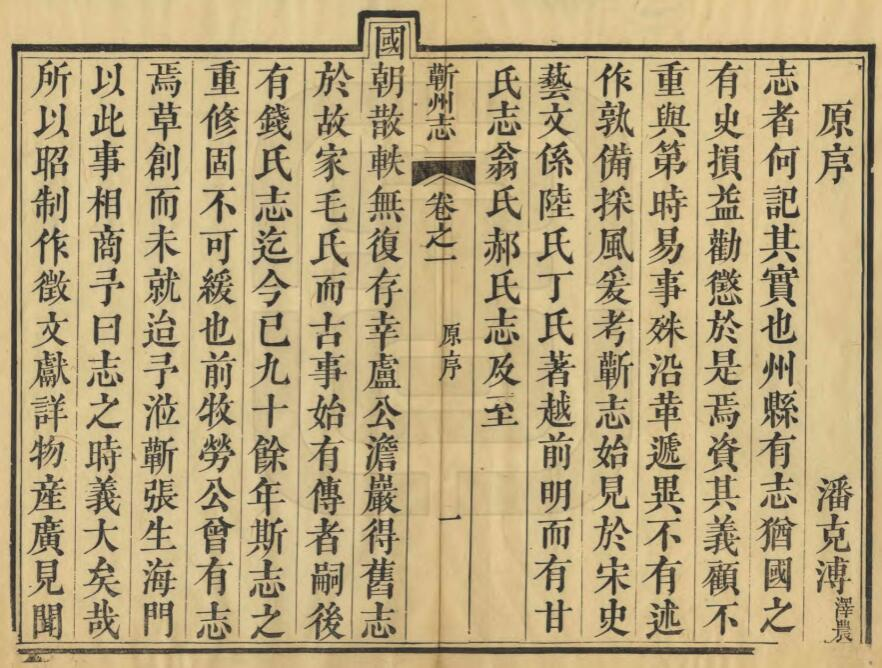 原序　潘克溥澤農
志者何記其實也州縣有志猶國之
有史損益勸懲於是焉資其義顧不
重與第時易事殊沿革遞異不有述
作孰備採風爰考蘄志始見於宋史
藝文係陸氏丁氏著越前明而有甘
氏志翁氏郝氏志及至
蘄州志　卷之一　原序　一
國朝散軼無復存幸盧公澹巖得舊志
於故家毛氏而古事始有傳者嗣後
有錢氏志迄今已九十餘年斯志之
重修固不可緩也前牧勞公曾有志
焉草創而未就迨予涖蘄張生海門
以此事相商予曰志之時義大矣哉
所以昭制作徵文獻詳物産廣見聞